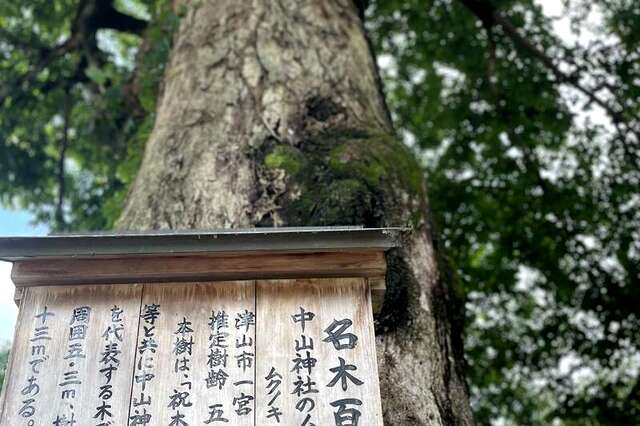 名木百
中山神社の
ムクノキ
津山市一宮
推定樹齢 五
本樹は「祝木
等と共に中山神
を代表する木で
周囲五・三m、樹
十三mである。